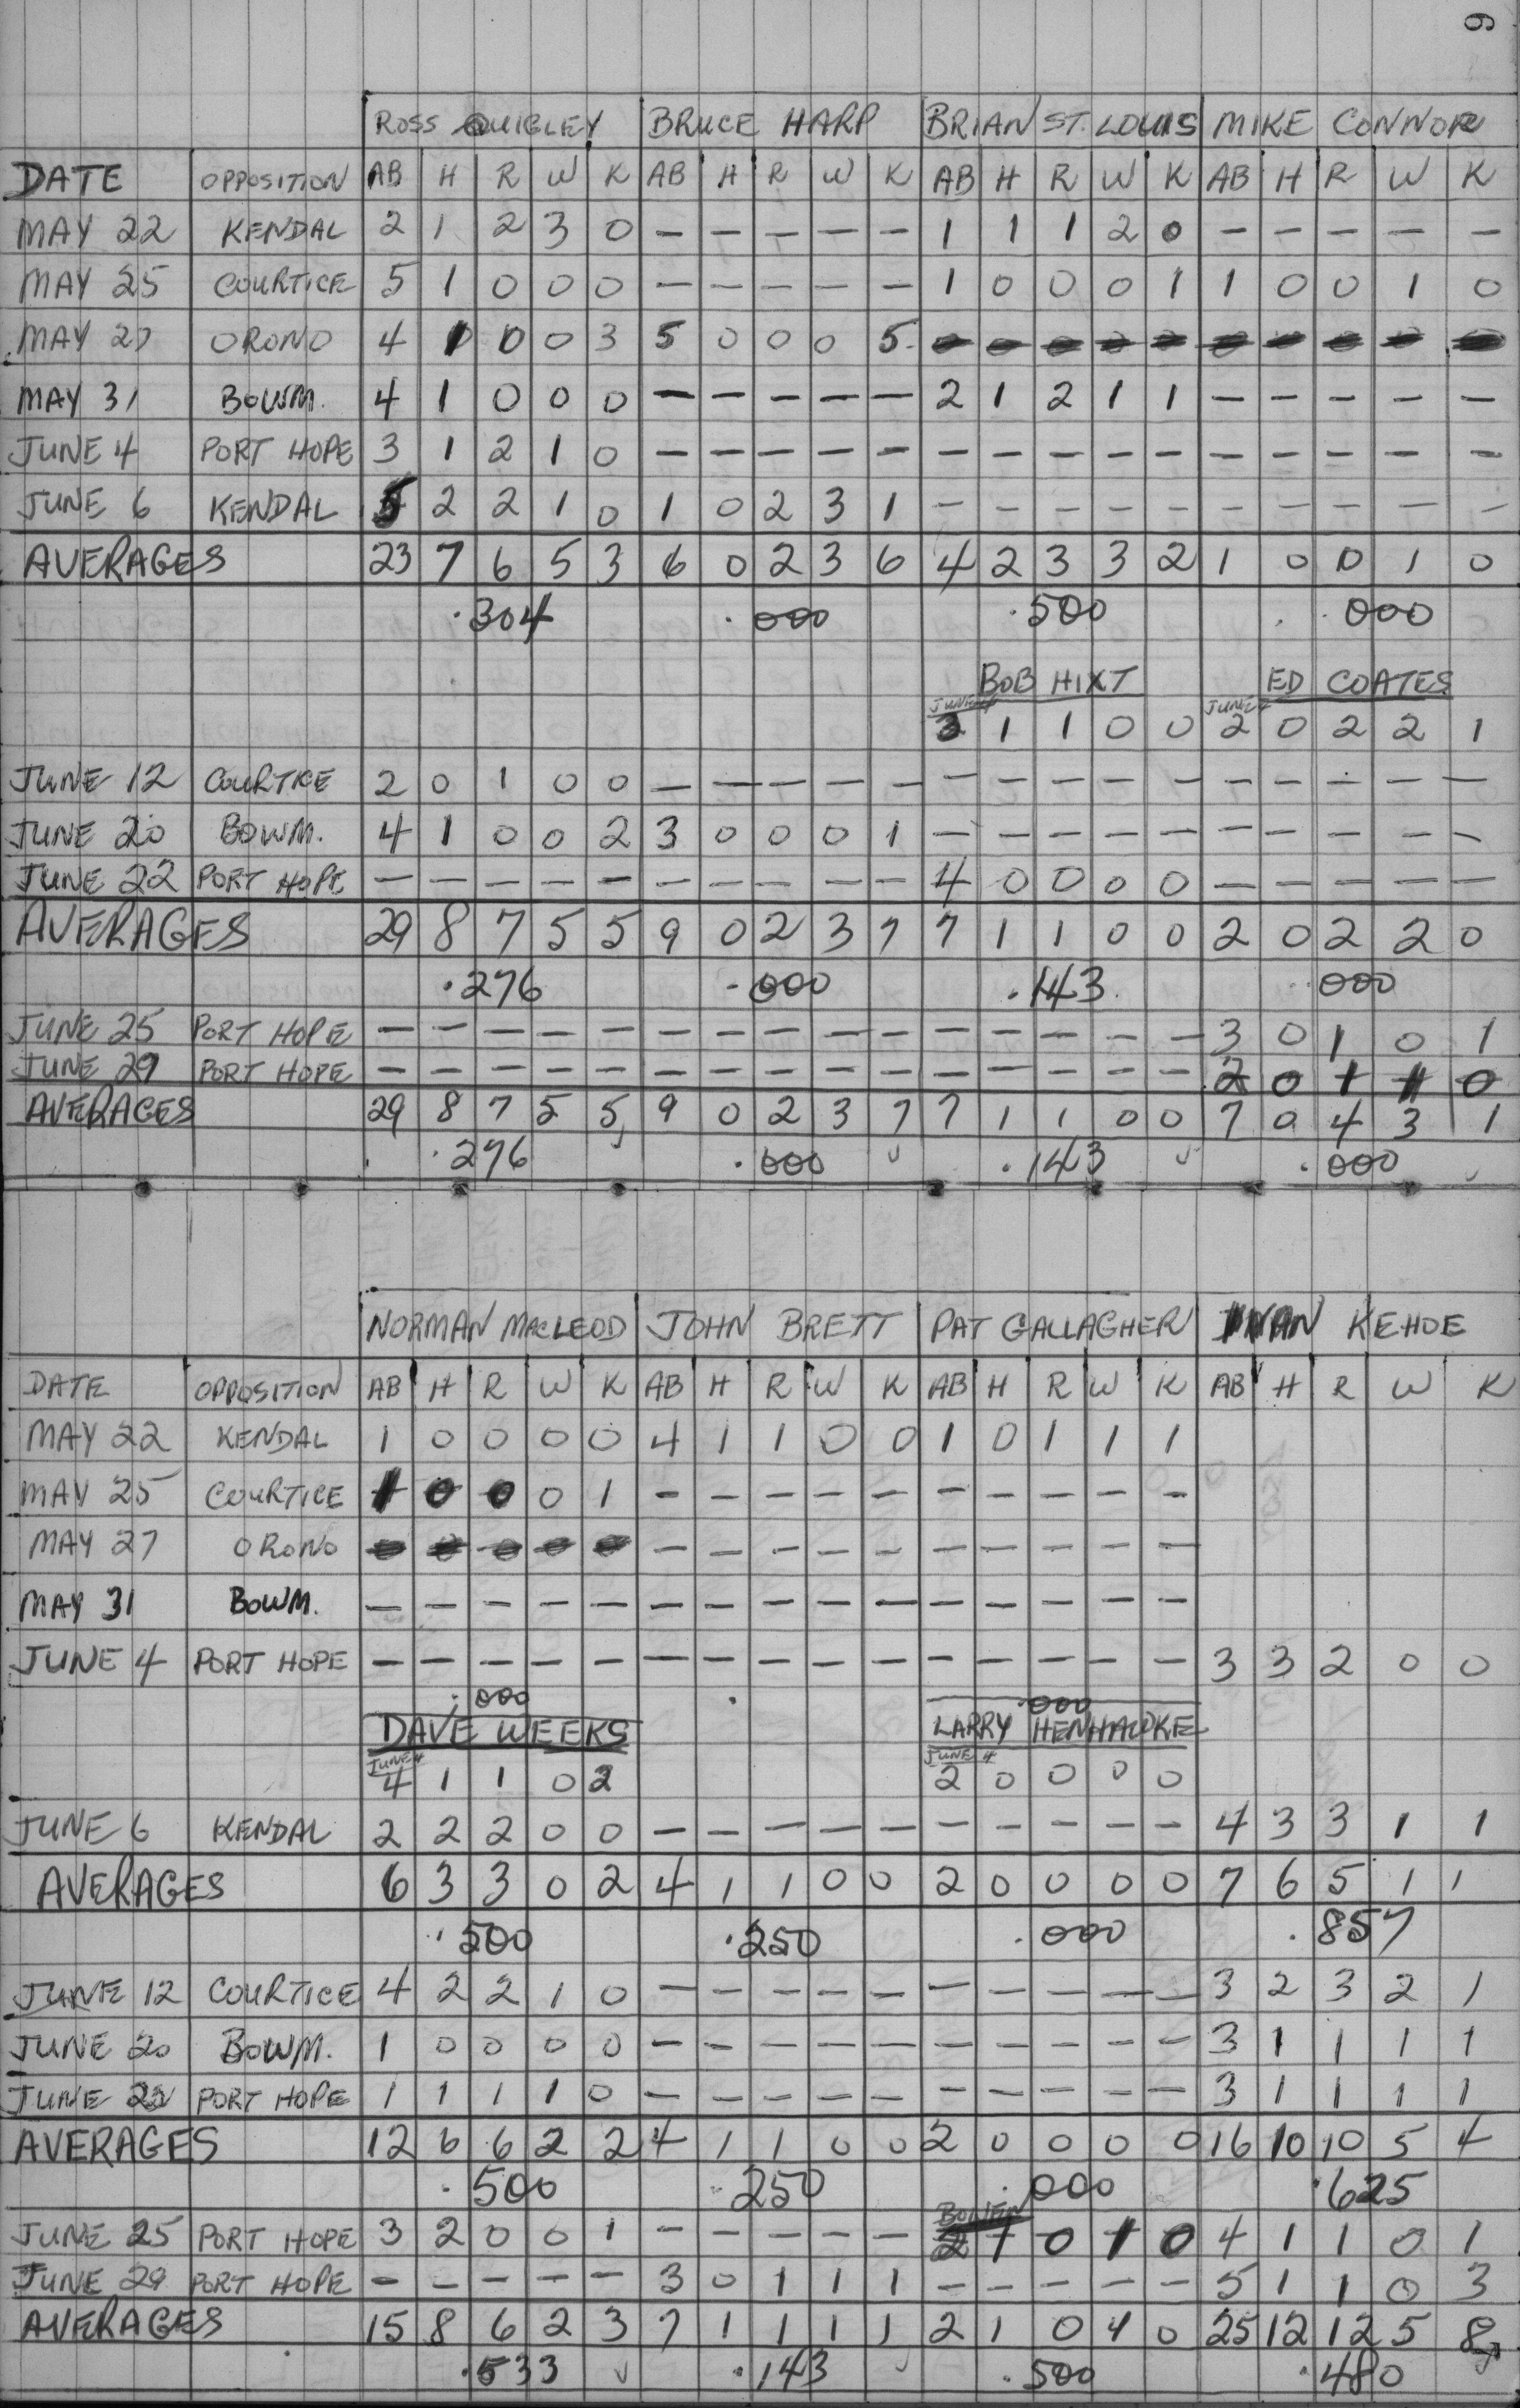 9
ROSS QUIGLEY BRUCE HARP BRIAN ST. LOUIS MIKE CONNOR
DATE OPPOSITION AB H R W K AB H R W K AB H R W K AB H R W K
MAY 22 KENDAL 2 1 2 3 0 - - - - - 1 1 1 2 0 - - - - -
MAY 25 COURTICE 5 1 0 0 0 - - - - - 1 0 0 0 1 1 0 0 1 0
MAY 27 ORONO 4 1 0 0 3 5 0 0 0 5
MAY 31 BOWM. 4 1 0 0 0 - - - - - 2 1 2 1 1 - - - - -
JUNE 4 PORT HOPE 3 1 2 1 0 - - - - - - - - - - - - - - -
JUNE 6 KENDAL 5 2 2 1 0 1 0 2 3 1 - - - - - - - - - -
AVERAGES 23 7 6 5 3 6 0 2 3 6 4 2 3 3 2 1 0 0 1 0
.304 .000 .500 .000
BOB HIXT ED COATES
JUNE 4 JUNE 4
3 1 1 0 0 2 0 2 2 1
JUNE 12 COURTICE 2 0 1 0 0 - - - - - - - - - - - - - - -
JUNE 20 BOWM. 4 1 0 0 2 3 0 0 0 1 - - - - - - - - - -
JUNE 22 PORT HOPE - - - - - - - - - - 4 0 0 0 0 - - - - -
AVERAGES 29 8 7 5 5 9 0 2 3 7 7 1 1 0 0 2 0 2 2 0
.276 .000 .143 .000
JUNE 25 PORT HOPE - - - - - - - - - - - - - - - 3 0 1 0 1
JUNE 29 PORT HOPE - - - - - - - - - - - - - - - 2 0 1 1 0
AVERAGES 29 8 7 5 5 9 0 2 3 7 7 1 1 0 0 7 0 4 3 1
.276 .000 .143 .000
NORMAN MACLEOD JOHN BRETT PAT GALLAGHER IVAN KEHOE
DATE OPPOSITION AB H R W K AB H R W K AB H R W K AB H R W K
MAY 22 KENDAL 1 0 0 0 0 4 1 1 0 0 1 0 1 1 1
MAY 25 COURTICE 1 0 0 0 1 - - - - - - - - - -
MAY 27 ORONO - - - - - - - - - -
MAY 31 BOWM. - - - - - - - - - - - - - - -
JUNE 4 PORT HOPE - - - - - - - - - - - - - - - 3 3 2 0 0
.000 . .000
DAVE WEEKS LARRY HENHAWKE
JUNE 4 JUNE 4
4 1 1 0 2 2 0 0 0 0
JUNE 6 KENDAL 2 2 2 0 0 - - - - - - - - - - 4 3 3 1 1
AVERAGES 6 3 3 0 2 4 1 1 0 0 2 0 0 0 0 7 6 5 1 1
.500 .250 .000 .857
JUNE 12 COURTICE 4 2 2 1 0 - - - - - - - - - - 3 2 3 2 1
JUNE 20 BOWM. 1 0 0 0 0 - - - - - - - - - - 3 1 1 1 1
JUNE 22 PORT HOPE 1 1 1 1 0 - - - - - - - - - - 3 1 1 1 1
AVERAGES 12 6 6 2 2 4 1 1 0 0 2 0 0 0 0 16 10 10 5 4
.500 .250 .000 .625
BOWEN
JUNE 25 PORT HOPE 3 2 0 0 1 - - - - - 2 1 0 1 0 4 1 1 0 1
JUNE 29 PORT HOPE - - - - - 3 0 1 1 1 - - - - - 5 1 1 0 3
AVERAGES 15 8 6 2 3 7 1 1 1 1 2 1 0 1 0 25 12 12 5 8
.533 .143 .500 .480